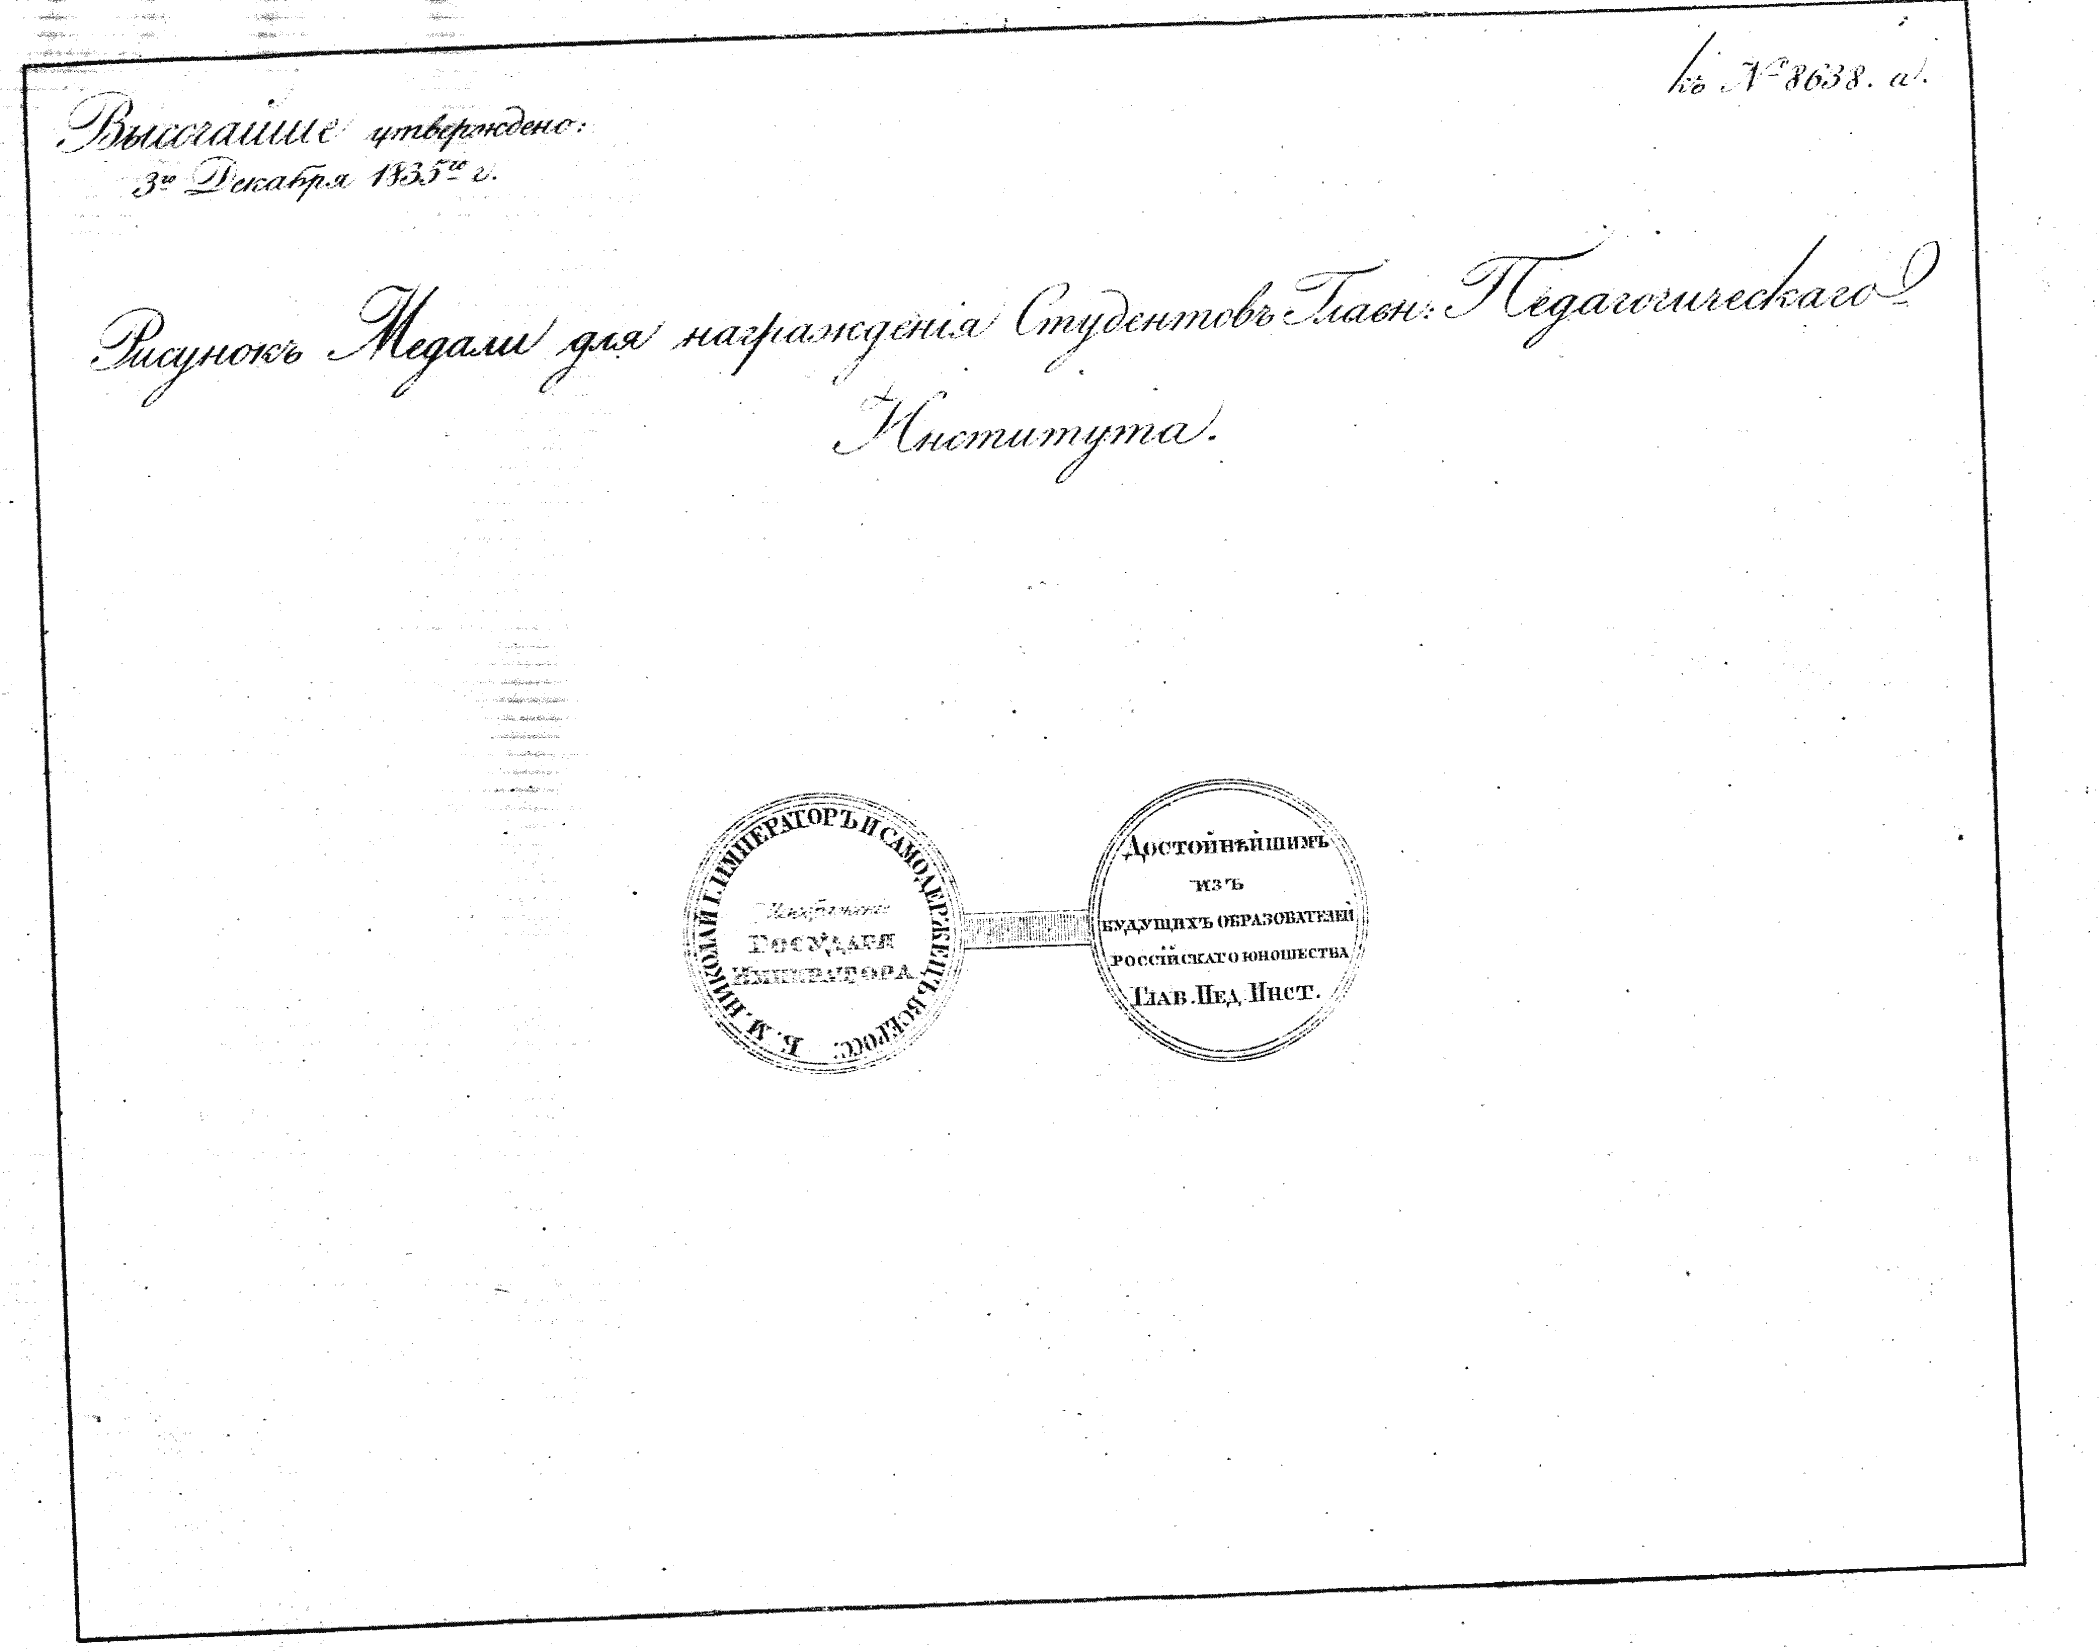 къ № 8638. а.
Высочайше утверждено:
3го Декабря 1835го г.
Рисунокъ Медали для награжденія Студентовъ Главн: Педагогическаго
Института.
Б. М. НИКОЛАЙ I. ИМПЕРАТОРЪ И САМОДЕРЖЕЦЪ ВСЕРОСС:
Изображеніе
ГОСУДАРЯ
ИМПЕРАТОРА
ДОСТОЙНѢЙШИМЪ
ИЗЪ
БУДУЩИХЪ ОБРАЗОВАТЕЛЕЙ
РОССІЙСКАГО ЮНОШЕСТВА
ГЛАВ. ПЕД. ИНСТ.